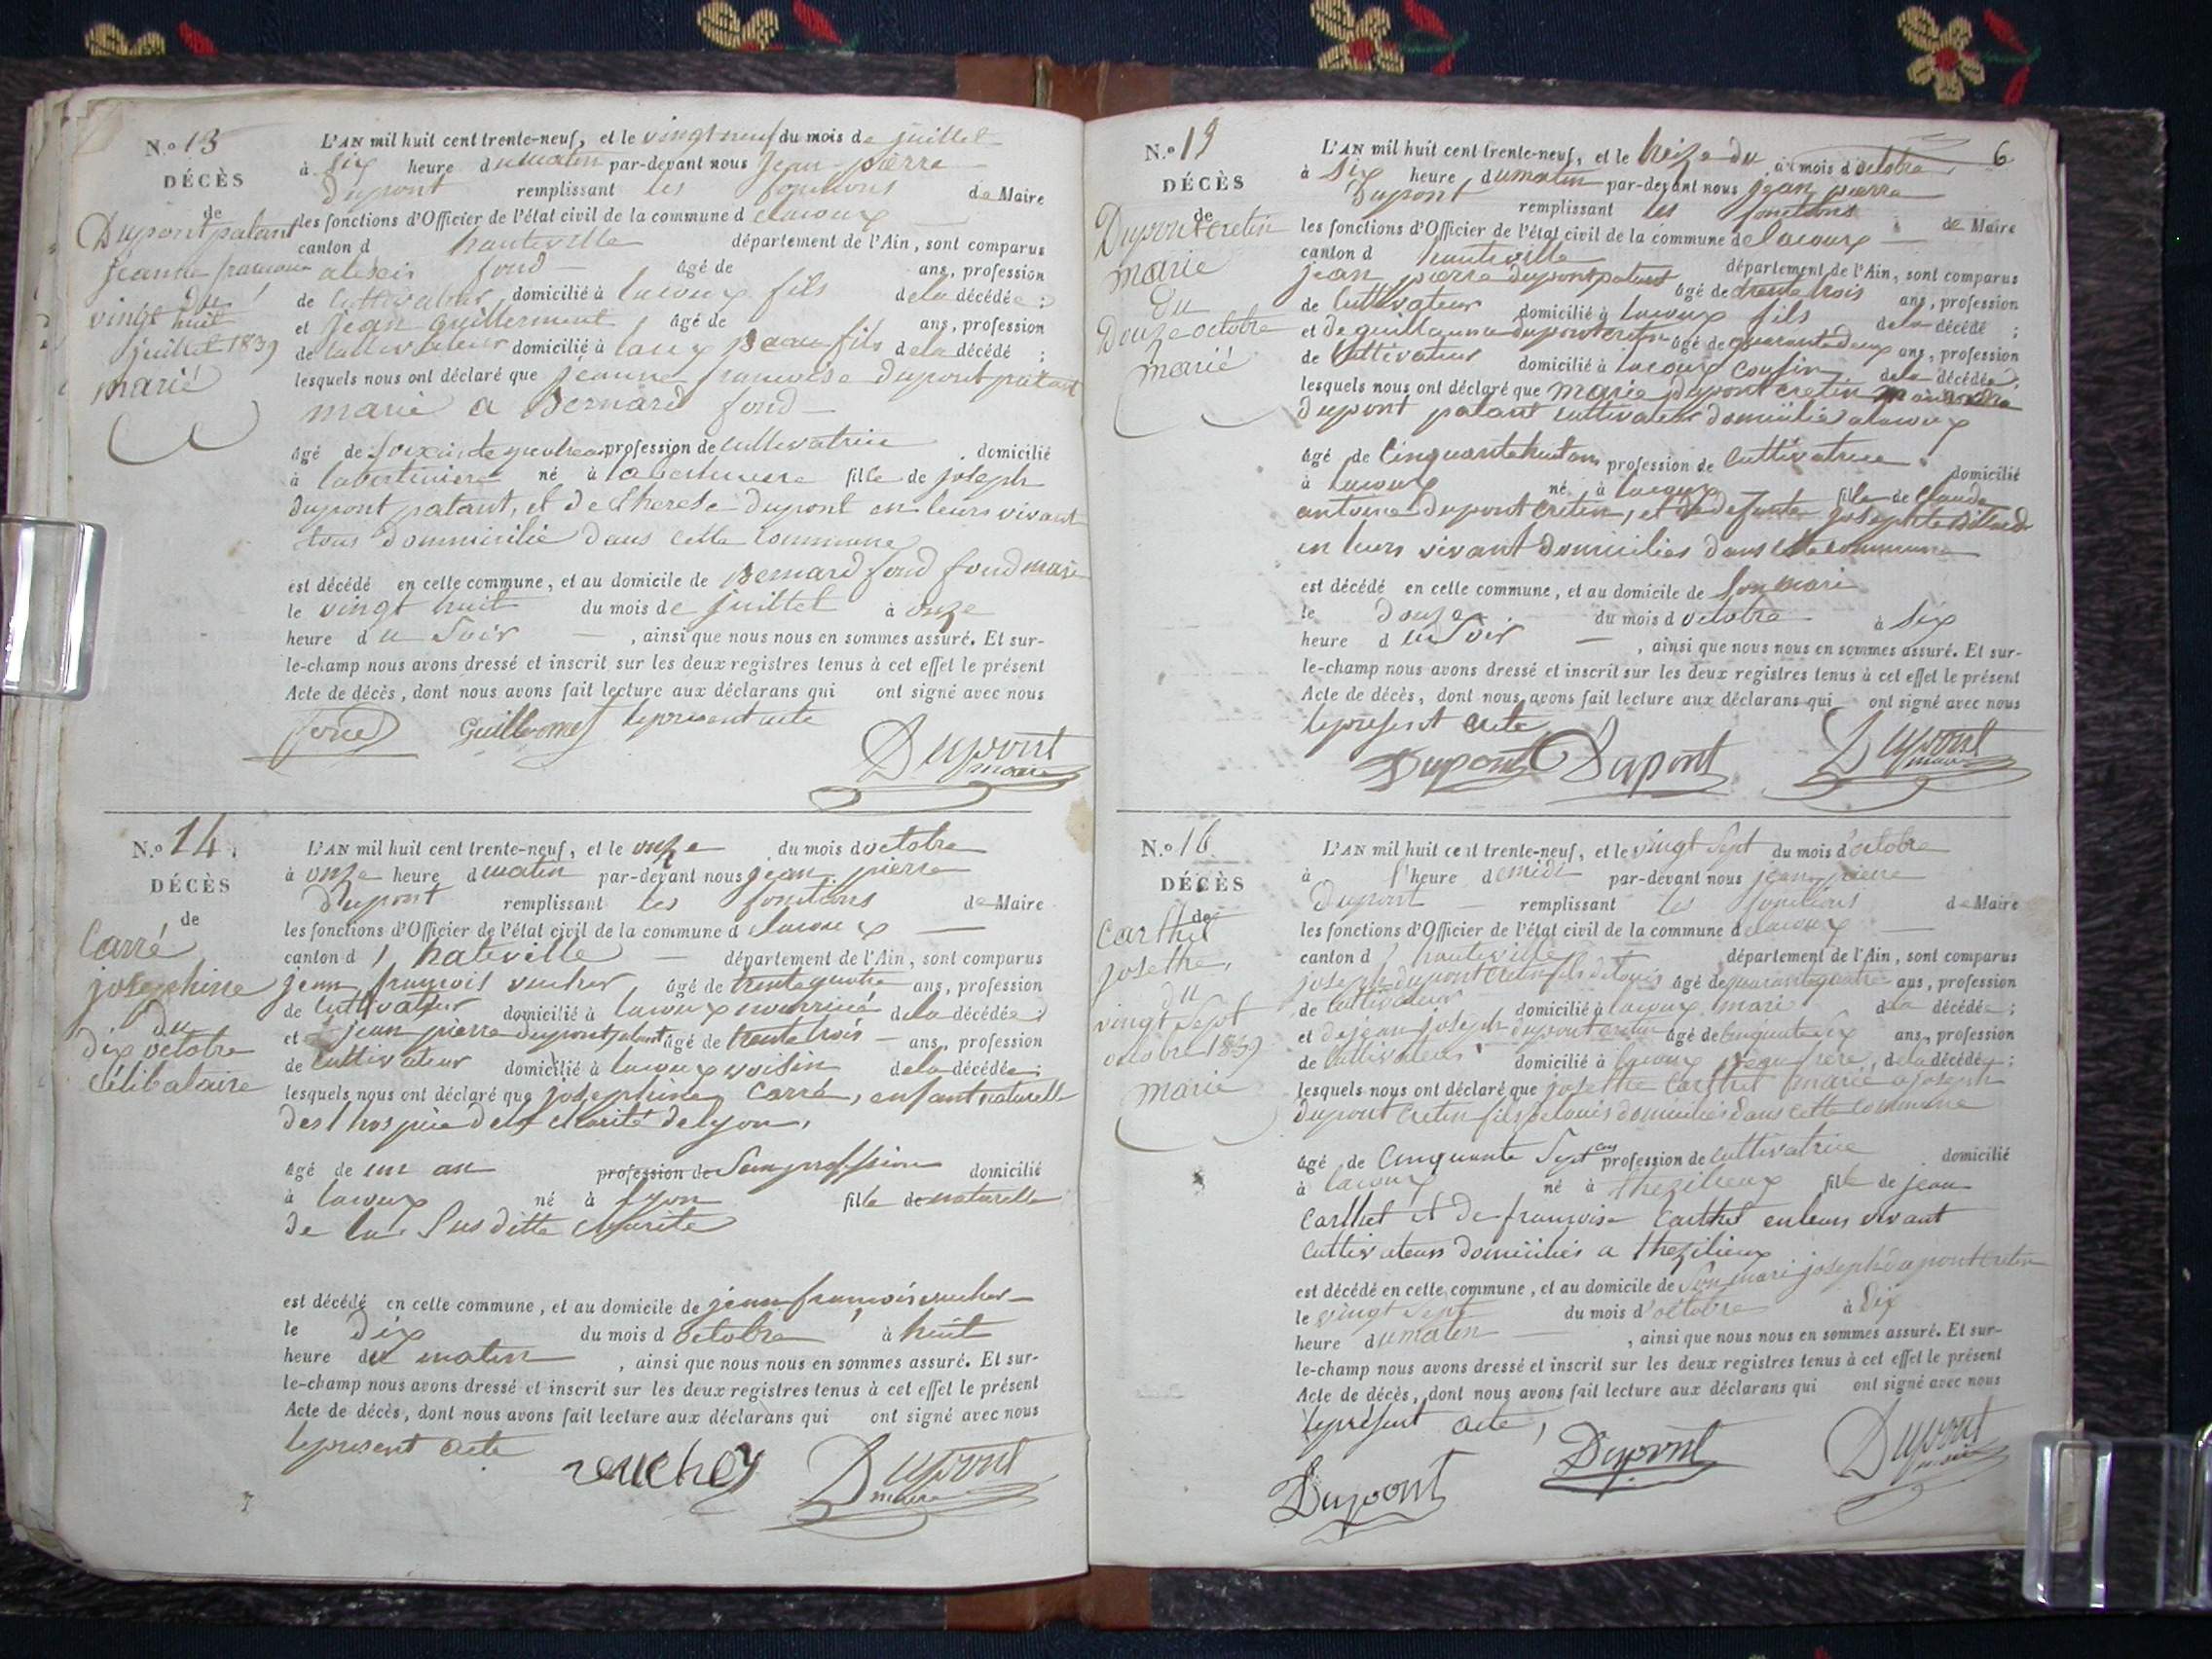 N.º 13
DÉCÈS
de
Dupont patant
jeanne françoise
du
vingt huit
juillet 1839
marié
L'AN mil huit cent trente-neuf, et le vingt neuf du mois de juillet
à six heure du matin par-devant nous jean pierre
Dupont remplissant les fonctions de Maire
les fonctions d'Officier de l'état civil de la commune de lacoux
canton d hauteville département de l'Ain, sont comparus
alexis fond âgé de ans, profession
de Cultivateur domicilié à lacoux fils de la décédée ;
et jean guillermet âgé de ans, profession
de Cultivateur domicilié à Beau fils de la décédé ;
lesquels nous ont déclaré que jeanne françoise dupont patant
marié a Bernard fond
âgé de profession de cultivatrice domicilié
à né à fille de joseph
dupont patant, et de therese dupont en leurs vivant
tous domicilié dans cette commune
est décédé en cette commune, et au domicile de Bernard fond fond mari
le vingt huit du mois de juillet à onze
heure du Soir , ainsi que nous nous en sommes assuré. Et sur-
le-champ nous avons dressé et inscrit sur les deux registres tenus à cet effet le présent
Acte de décès, dont nous avons fait lecture aux déclarans qui ont signé avec nous
le present acte
fond Guillermet Dupont
maire
N.º 14
DÉCÈS
de
Carré
josephine
du
dix octobre
célibataire
L'AN mil huit cent trente-neuf, et le onze du mois d octobre
à onze heure d matin par-devant nous jean pierre
Dupont remplissant les fonctions de Maire
les fonctions d'Officier de l'état civil de la commune d lacoux
canton d hateville département de l'Ain, sont comparus
jean françois vucher âgé de trente quatre ans, profession
de Cultivateur domicilié à lacoux nourricié de la décédée ;
et jean pierre dupont patant âgé de trente trois ans, profession
de Cultivateur domicilié à lacoux voisin de la décédée ;
lesquels nous ont déclaré que josephine Carré, enfant naturelle
de l'hospice de la charité de lyon,
âgé de un an profession de Sans proffession domicilié
à lacoux né à lyon fille de naturelle
de la Sus ditte charité
est décédé en cette commune, et au domicile de jean françois vucher
le dix du mois d octobre à huit
heure du matin , ainsi que nous nous en sommes assuré. Et sur-
le-champ nous avons dressé et inscrit sur les deux registres tenus à cet effet le présent
Acte de décès, dont nous avons fait lecture aux déclarans qui ont signé avec nous
le present acte
Dupont
maire
6
N.º 15
DÉCÈS
de
Dupont cretin
marie
du
Douze octobre
marié
L'AN mil huit cent trente-neuf, et le treize du mois d octobre
à six heure du matin par-devant nous jean pierre
Dupont remplissant les fonctions de Maire
les fonctions d'Officier de l'état civil de la commune de lacoux
canton d hauteville département de l'Ain, sont comparus
jean pierre dupont patant âgé de trente trois ans, profession
de Cultivateur domicilié à lacoux fils de la décédé ;
et de guillaume dupont cretin âgé de quarante deux ans, profession
de Cultivateur domicilié à lacoux Cousin de la décédée ;
lesquels nous ont déclaré que marie dupont cretin
dupont patant cultivateur domicilié a lacoux
âgé de Cinquante huit ans profession de Cultivatrice domicilié
à lacoux né à lacoux fille de claude
antoine dupont cretin, et de defunte josephte
en leurs vivant domiciliés dans cette commune
est décédé en cette commune, et au domicile de Son mari
le douze du mois d octobre à Six
heure d u Soir , ainsi que nous nous en sommes assuré. Et sur-
le-champ nous avons dressé et inscrit sur les deux registres tenus à cet effet le présent
Acte de décès, dont nous avons fait lecture aux déclarans qui ont signé avec nous
le present acte
Dupont Dupont Dupont
maire
N.º 16
DÉCÈS
de
Carthet
josethe,
du
vingt Sept
octobre 1839
marié
L'AN mil huit cent trente-neuf, et le vingt Sept du mois d'octobre
à heure de midi par-devant nous jean pierre
Dupont remplissant les fonctions de Maire
les fonctions d'Officier de l'état civil de la commune de lacoux
canton d hauteville département de l'Ain, sont comparus
joseph dupont cretin fils de louis âgé de quarante quatre ans, profession
de Cultivateur domicilié à lacoux mari de la décédée ;
et de jean joseph dupont cretin âgé de ans, profession
de Cultivateur domicilié à lacoux Beau frere, de la décédée ;
lesquels nous ont déclaré que josethe Carthet marié a joseph
dupont cretin fils de louis domiciliés dans cette commune
âgé de Cinquante Sept ans profession de cultivatrice domicilié
à lacoux né à thezilieux fille de jean
Carthet et de françoise Carthet en leurs vivant
Cultivateurs domiciliés a thezilieux
est décédé en cette commune, et au domicile de Son mari joseph dupont cretin
le vingt Sept du mois d'octobre à dix
heure du matin , ainsi que nous nous en sommes assuré. Et sur-
le-champ nous avons dressé et inscrit sur les deux registres tenus à cet effet le présent
Acte de décès, dont nous avons fait lecture aux déclarans qui ont signé avec nous
le présent acte,
Dupont Dupont Dupont